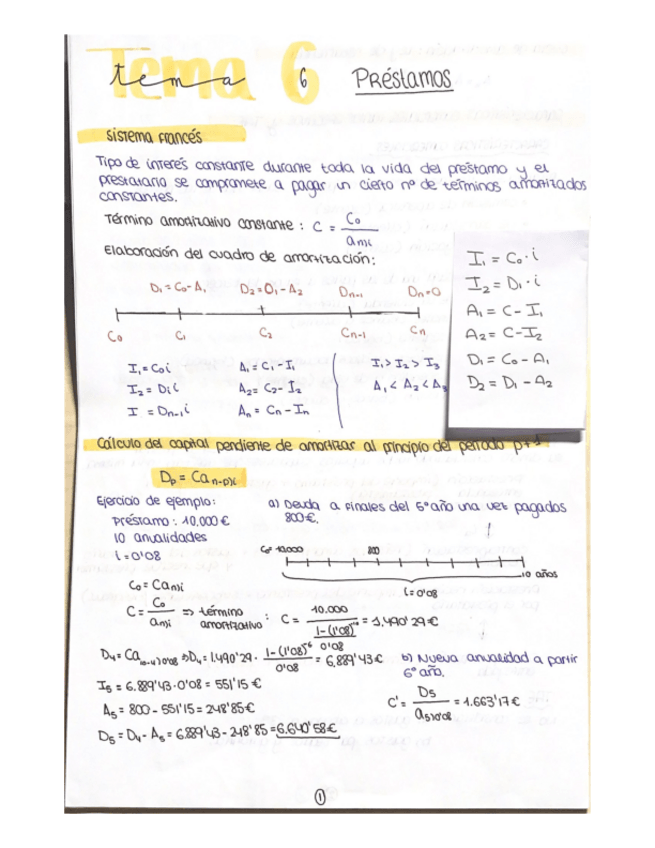 Tema 6
tema 6 Préstamos
Sistema Francés
Tipo de interés constante durante toda la vida del préstamo y el
prestatario se compromete a pagar un cierto nº de términos amortizados
constantes.
Término amortizativo constante : C = C₀ / aₙ⌉ᵢ
Elaboración del cuadro de amortización:
D₁ = C₀ - A₁ D₂ = D₁ - A₂ Dₙ₋₁ Dₙ = 0
C₀ C₁ C₂ Cₙ₋₁ Cₙ
I₁ = C₀ i A₁ = C₁ - I₁ I₁ > I₂ > I₃
I₂ = D₁ i A₂ = C₂ - I₂ A₁ < A₂ < A₃
I = Dₙ₋₁ i Aₙ = Cₙ - Iₙ
I₁ = C₀ · i
I₂ = D₁ · i
A₁ = C - I₁
A₂ = C - I₂
D₁ = C₀ - A₁
D₂ = D₁ - A₂
Cálculo del capital pendiente de amortizar al principio del periodo p+1
Dₚ = C aₙ₋ₚ⌉ᵢ
Ejercicio de ejemplo:
Préstamo : 10.000 €
10 anualidades
i = 0'08
a) Deuda a finales del 5º año una vez pagados
800€.
C₀ = 10.000 800
10 años
i = 0'08
C₀ = C aₙ⌉ᵢ
C = C₀ / aₙ⌉ᵢ => término amortizativo : C = 10.000 / (1-(1'08)⁻¹⁰ / 0'08) = 1.490'29 €
D₄ = C a₁₀₋₄⌉₀'₀₈ => D₄ = 1.490'29 · 1-(1'08)⁻⁶ / 0'08 = 6.889'43 €
I₅ = 6.889'43 · 0'08 = 551'15 €
A₅ = 800 - 551'15 = 248'85 €
D₅ = D₄ - A₅ = 6.889'43 - 248'85 = 6.640'58 €
b) Nueva anualidad a partir
6º año.
C' = D₅ / a₅⌉₀'₀₈ = 1.663'17 €
1